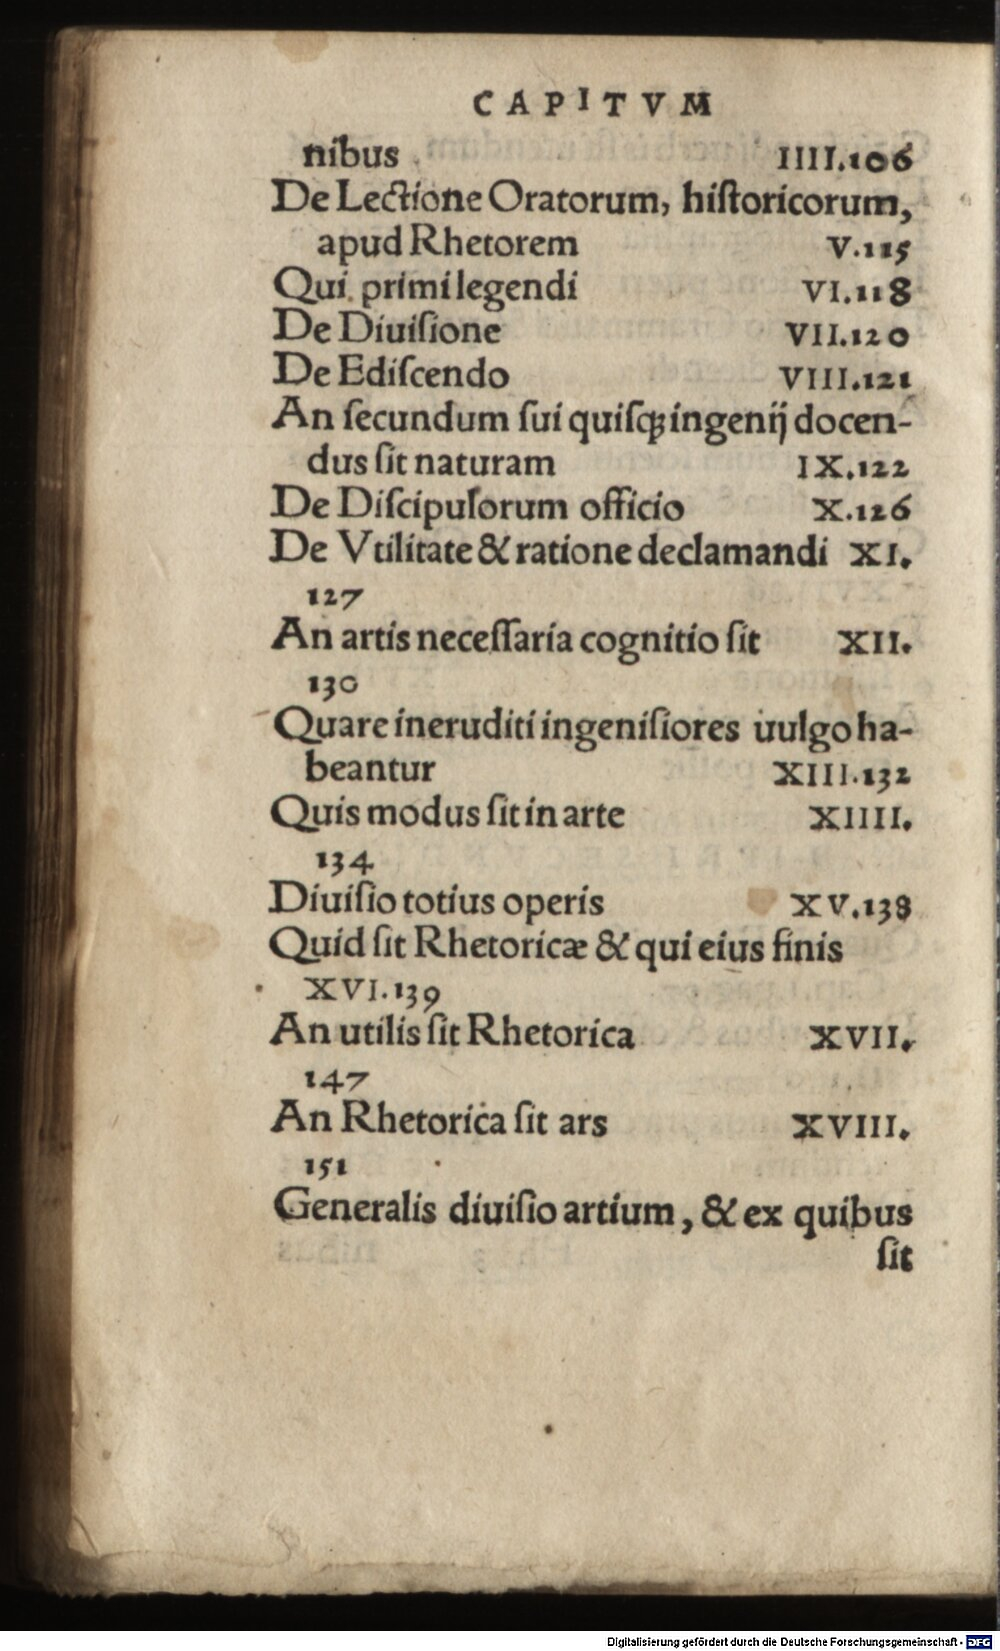 CAPITVM
nibus IIII.106
De Lectione Oratorum, hiſtoricorum,
apud Rhetorem V.115
Qui primi legendi VI.118
De Diuiſione VII.120
De Ediſcendo VIII.121
An ſecundum ſui quiſqꝫ ingenij docen-
dus ſit naturam IX.122
De Diſcipulorum officio X.126
De Vtilitate & ratione declamandi XI.
127
An artis neceſſaria cognitio ſit XII.
130
Quare ineruditi ingeniſiores uulgo ha-
beantur XIII.132
Quis modus ſit in arte XIIII.
134
Diuiſio totius operis XV.138
Quid ſit Rhetoricæ & qui eius finis
XVI.139
An utilis ſit Rhetorica XVII.
147
An Rhetorica ſit ars XVIII.
151
Generalis diuiſio artium, & ex quibus
ſit
Digitalisierung gefördert durch die Deutsche Forschungsgemeinschaft - DFG